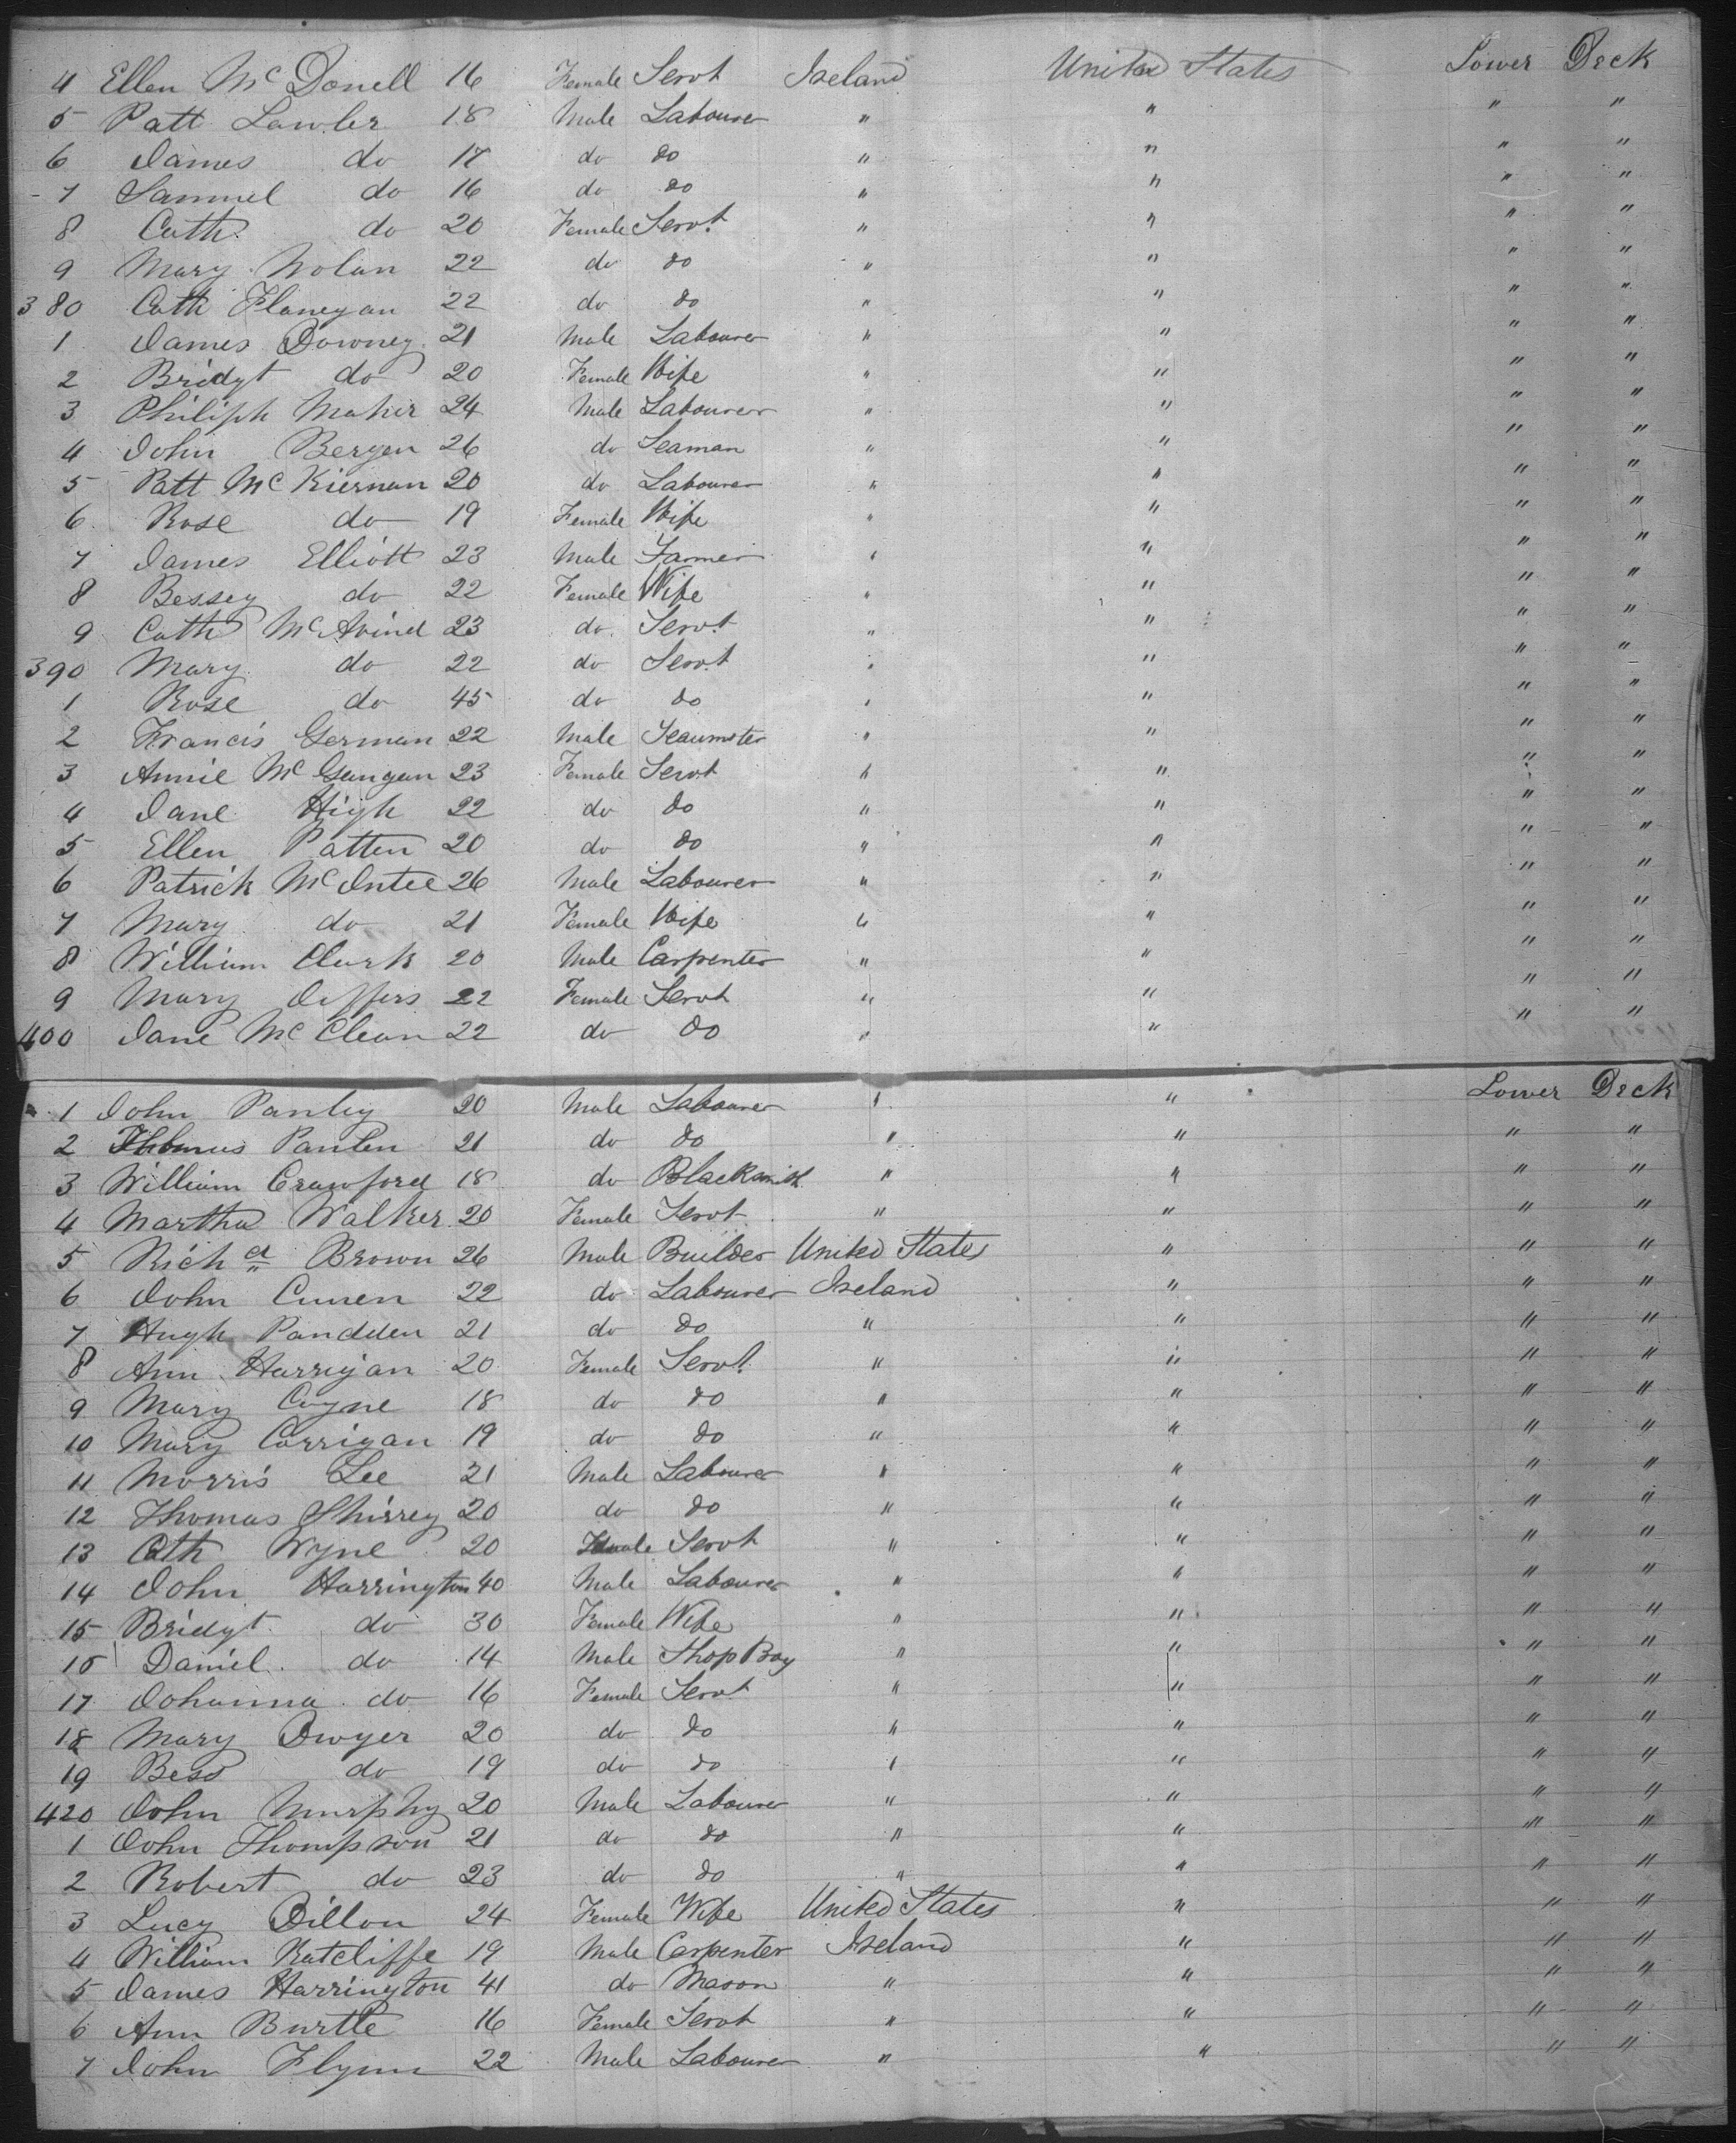 4 Ellen McDonell 16 Female Servt Ireland United States Lower Deck
5 Patt Lawler 18 Male Labourer " " " "
6 James do 17 do do " " " "
7 Samuel do 16 do do " " " "
8 Cath do 20 Female Servt " " " "
9 Mary Nolan 22 do do " " " "
380 Cath Flanegan 22 do do " " " "
1 James Downey 21 Male Labourer " " " "
2 Bridgt do 20 Female Wife " " " "
3 Philiph Maher 24 Male Labourer " " " "
4 John Bergen 26 do Seaman " " " "
5 Patt McKiernan 20 do Labourer " " " "
6 Rose do 19 Female Wife " " " "
7 James Elliott 23 Male Farmer " " " "
8 Bessey do 22 Female Wife " " " "
9 Cath McAvind 23 do Servt " " " "
390 Mary do 22 do Servt " " " "
1 Rose do 45 do do " " " "
2 Francis German 22 Male Teamster " " " "
3 Annie McGangan 23 Female Servt " " " "
4 Jane High 22 do do " " " "
5 Ellen Patten 20 do do " " " "
6 Patrick McIntee 26 Male Labourer " " " "
7 Mary do 21 Female Wife " " " "
8 William Clark 20 Male Carpenter " " " "
9 Mary Jeffers 22 Female Servt " " " "
400 Jane McClean 22 do do " " " "
1 John 20 Male Labourer " " Lower Deck
2 Thomas 21 do do " " " "
3 William Crawford 18 do Blacksmith " " " "
4 Martha Walker 20 Female Servt " " " "
5 Richd Brown 26 Male Builder United States " " "
6 John Cunen 22 do Labourer Ireland " " "
7 Hugh Pandden 21 do do " " " "
8 Ann Harrigan 20 Female Servt " " " "
9 Mary Coyne 18 do do " " " "
10 Mary Corrigan 19 do do " " " "
11 Morris Lee 21 Male Labourer " " " "
12 Thomas Shirrey 20 do do " " " "
13 Cath Wyne 20 Female Servt " " " "
14 John Harrington 40 Male Labourer " " " "
15 Bridgt do 30 Female Wife " " " "
16 Daniel do 14 Male Shop Boy " " " "
17 Johanna do 16 Female Servt " " " "
18 Mary Dwyer 20 do do " " " "
19 Bess do 19 do do " " " "
420 John Murphy 20 Male Labourer " " " "
1 John Thompson 21 do do " " " "
2 Robert do 23 do do " " " "
3 Lucy Dillon 24 Female Wife United States " " "
4 William Ratcliffe 19 Male Carpenter Ireland " " "
5 James Harrington 41 do Mason " " " "
6 Ann Burtle 16 Female Servt " " " "
7 John Flynn 22 Male Labourer " " " "